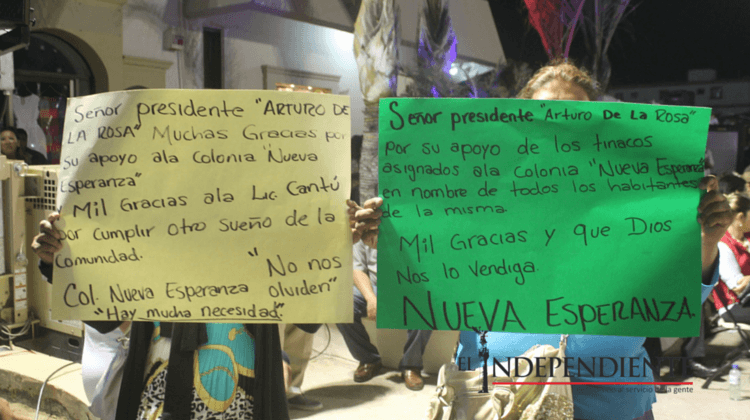 Señor presidente "ARTURO DE
LA ROSA" Muchas Gracias por
su apoyo ala colonia "Nueva
Esperanza"
Mil Gracias ala Lic. Cantú
por cumplir otro sueño de la
comunidad.
"No nos
Col. Nueva Esperanza olviden"
"Hay mucha necesidad."
Señor presidente "Arturo De La Rosa"
por su apoyo de los tinacos
asignados ala colonia "Nueva Esperanza"
en nombre de todos los habitantes
de la misma.
Mil Gracias y que Dios
Nos lo Vendiga.
NUEVA ESPERANZA.
EL INDEPENDIENTE
al servicio de la gente